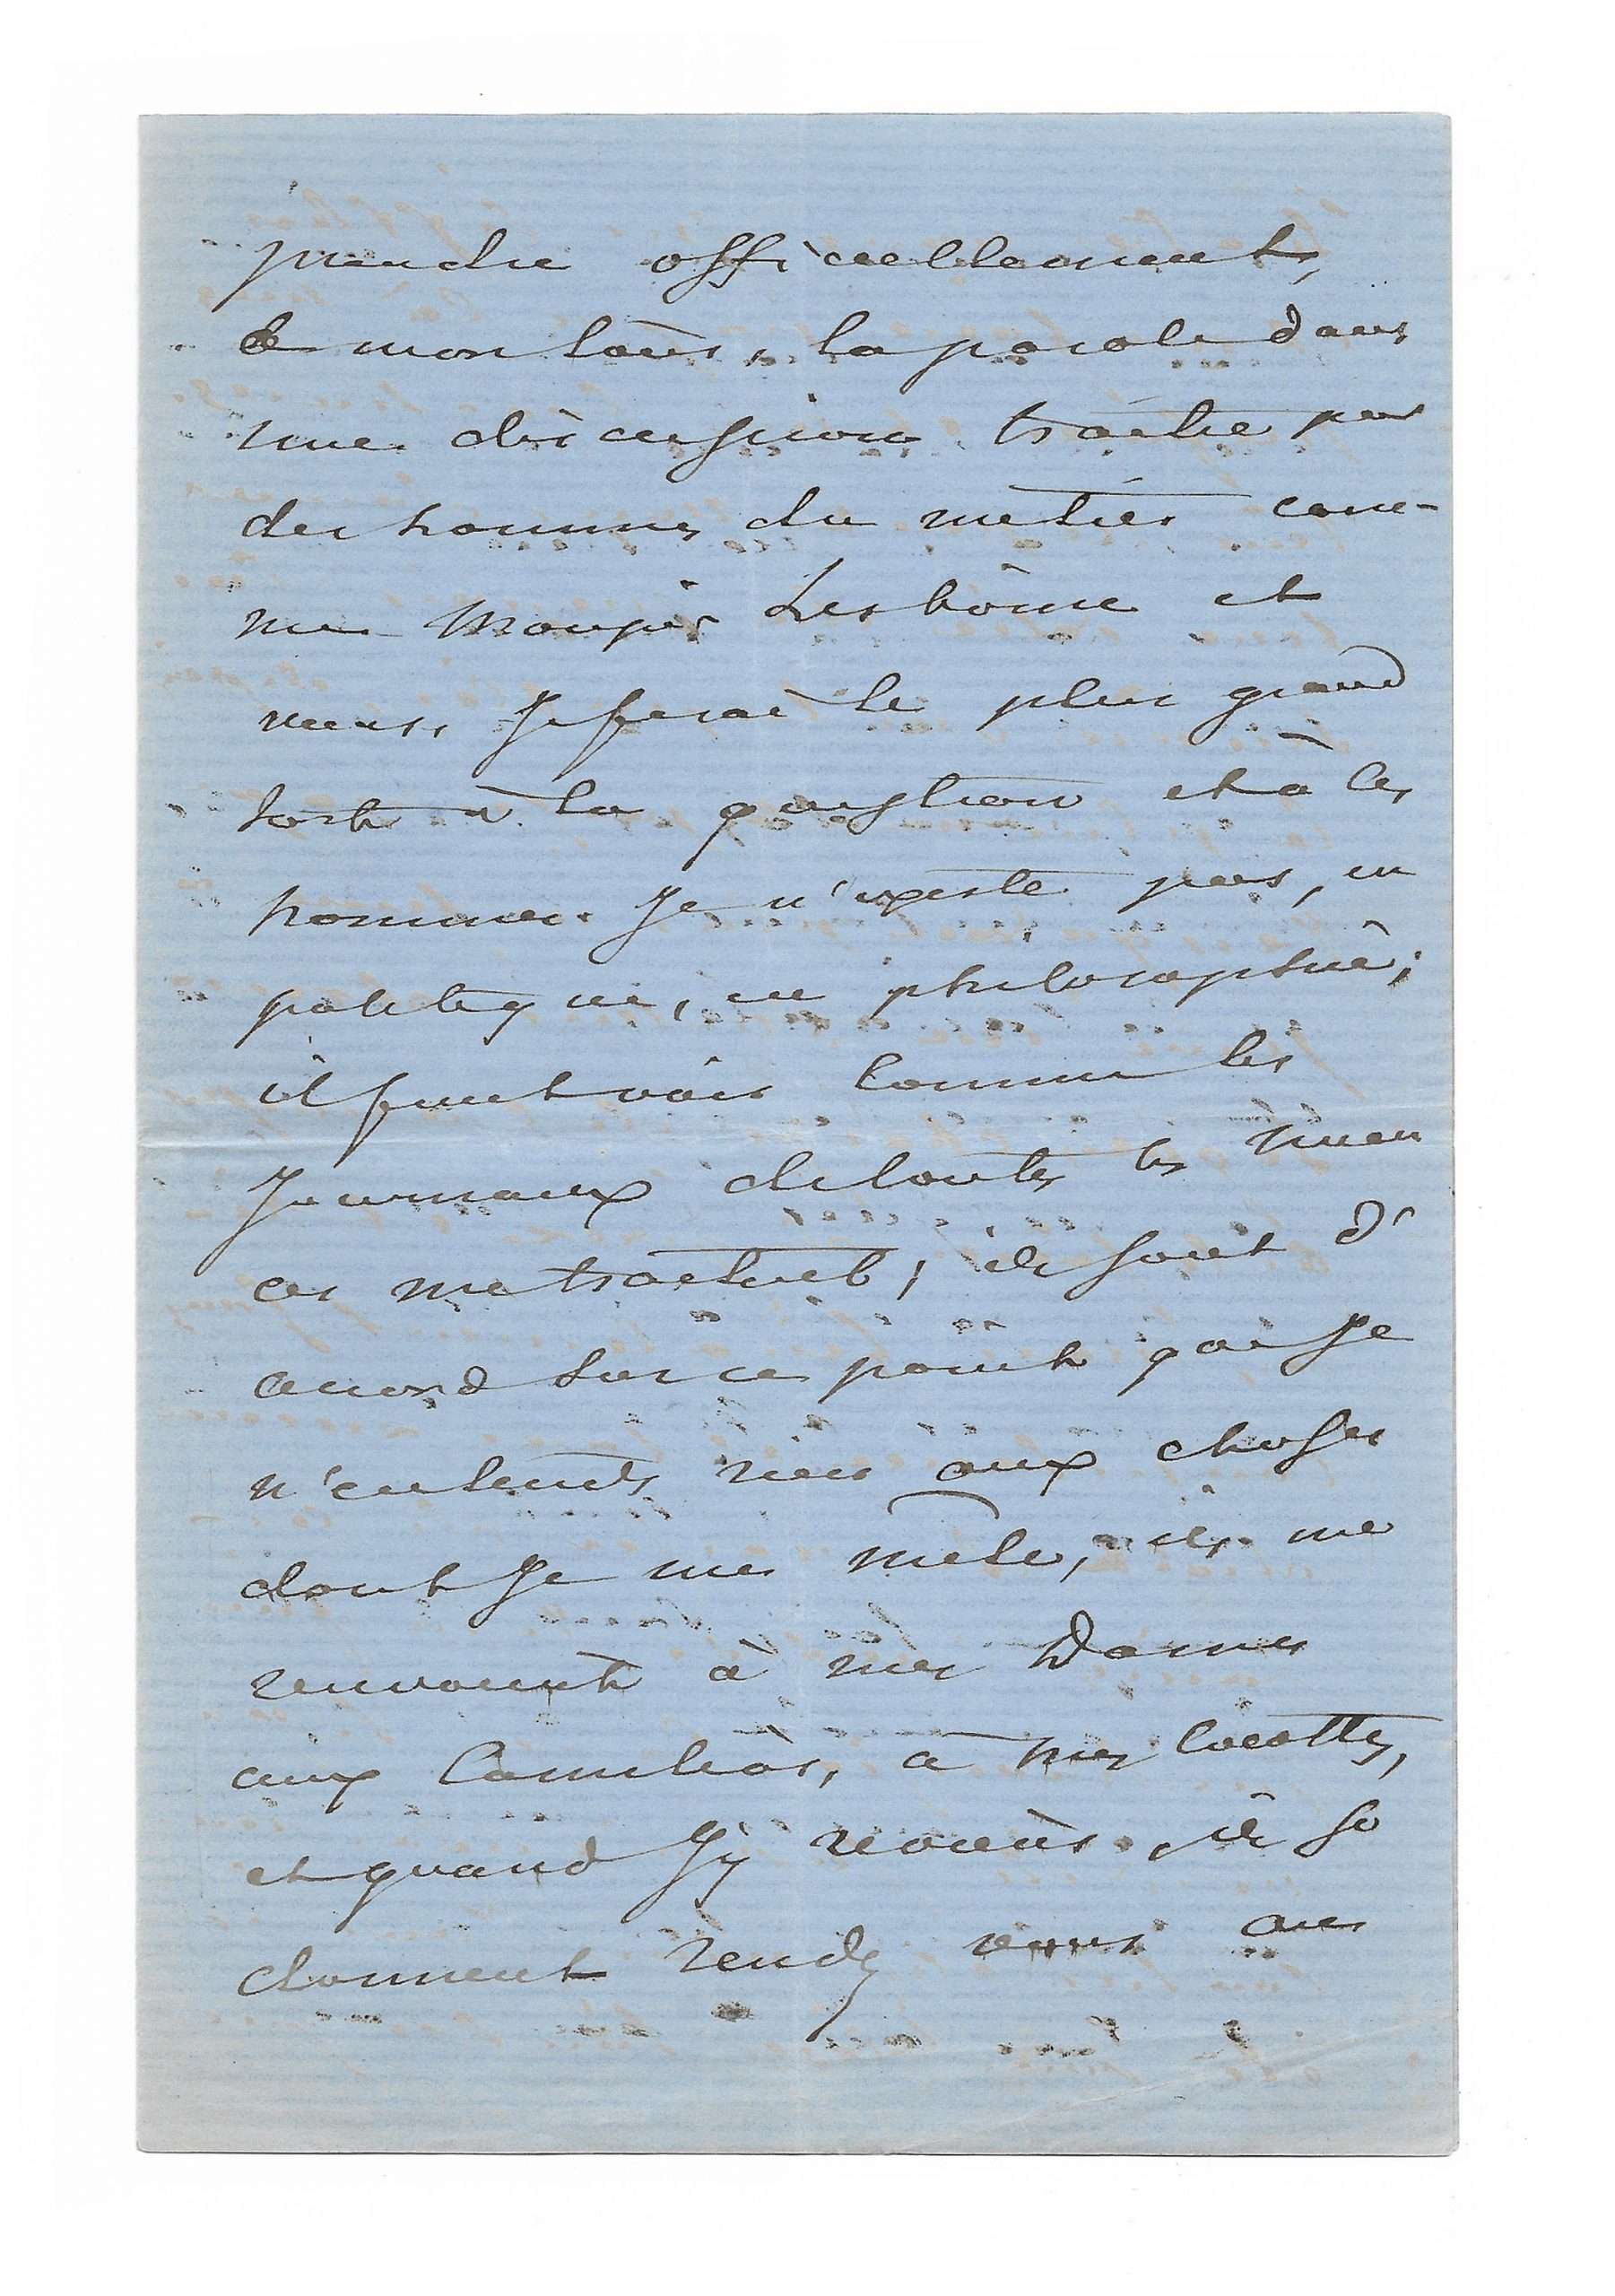 prendre officiellement,
à mon tour, la parole dans
une discussion traitée par
des hommes du métier com-
me Monsieur et
vous, je ferai le plus grand
tort à la question et à ces
hommes. Je n'existe pas, en
politique, en philosophie;
il faut voir comme les
journaux de toutes les nuan
ces me traitent; ils sont d'
accord sur ce point que je
n'entends rien aux choses
dont je me mêle, ils me
renvoient à mes Dames
aux Camélias, à mes cocottes,
et quand j'y reviens ils se
donnent rendez vous au